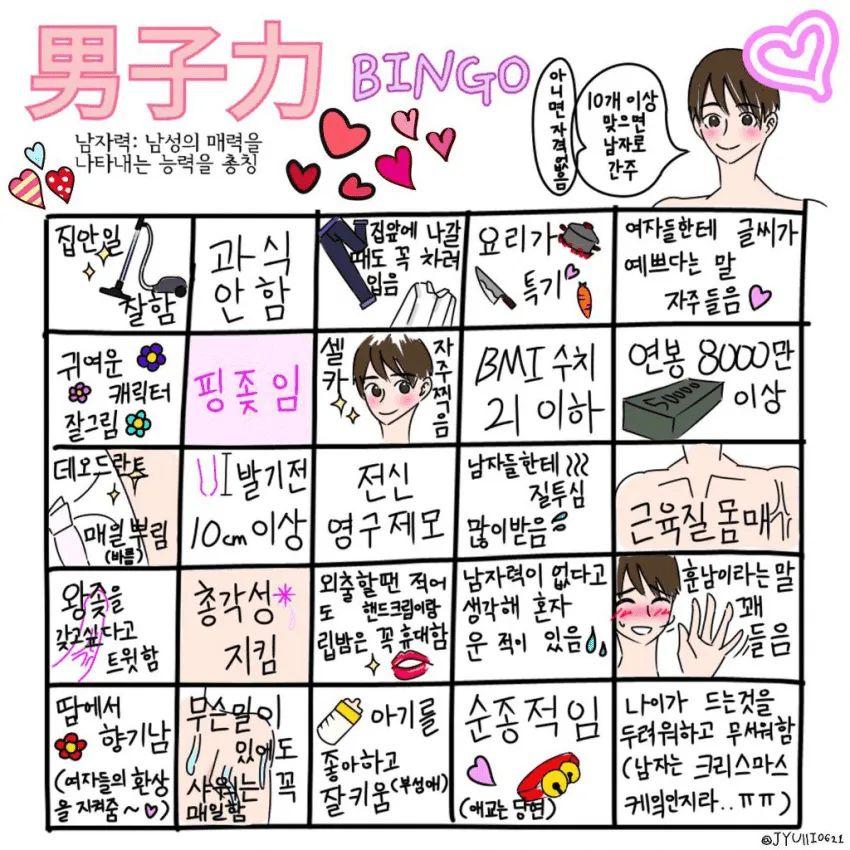 男子力 BINGO
남자력: 남성의 매력을
나타내는 능력을 총칭
아니면 자격없음
10개 이상
맞으면
남자로
간주
집안일
잘함
과식
안함
집앞에 나갈
때도 꼭 차려
입음
요리가
특기
여자들한테 글씨가
예쁘다는 말
자주들음
귀여운
캐릭터
잘그림
핑좆임
셀카
자주찍음
BMI 수치
21 이하
연봉 8000만
이상
50000
데오드란트
매일뿌림
(바름)
발기전
10cm이상
전신
영구제모
남자들한테
질투심
많이받음
근육질몸매
왕좆을
갖고싶다고
트윗함
총각성
지킴
외출할땐 적어
도 핸드크림이랑
립밤은 꼭 휴대함
남자력이 없다고
생각해 혼자
운 적이 있음
훈남이라는말
꽤
들음
땀에서
향기남
(여자들의 환상
을 지켜줌~)
무슨일이
있어도
샤워는 꼭
매일함
아기를
좋아하고
잘키움(부성애)
순종적임
(애교는 당연)
나이가 드는것을
두려워하고 무서워함
(남자는 크리스마스
케익인지라..ㅠㅠ)
@JYU11I0621